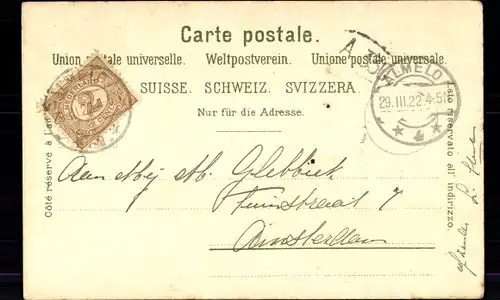 Carte postale.
Union postale universelle. Weltpostverein. Unione postale universale.
SUISSE. SCHWEIZ. SVIZZERA.
Nur für die Adresse.
ALMELO
29.III.22 4-5N
4
Côté réservé à l'adresse.
Lato riservato all'indirizzo.
Aan Mej M. Glebbeek
Tuinstraat 7
Amsterdam